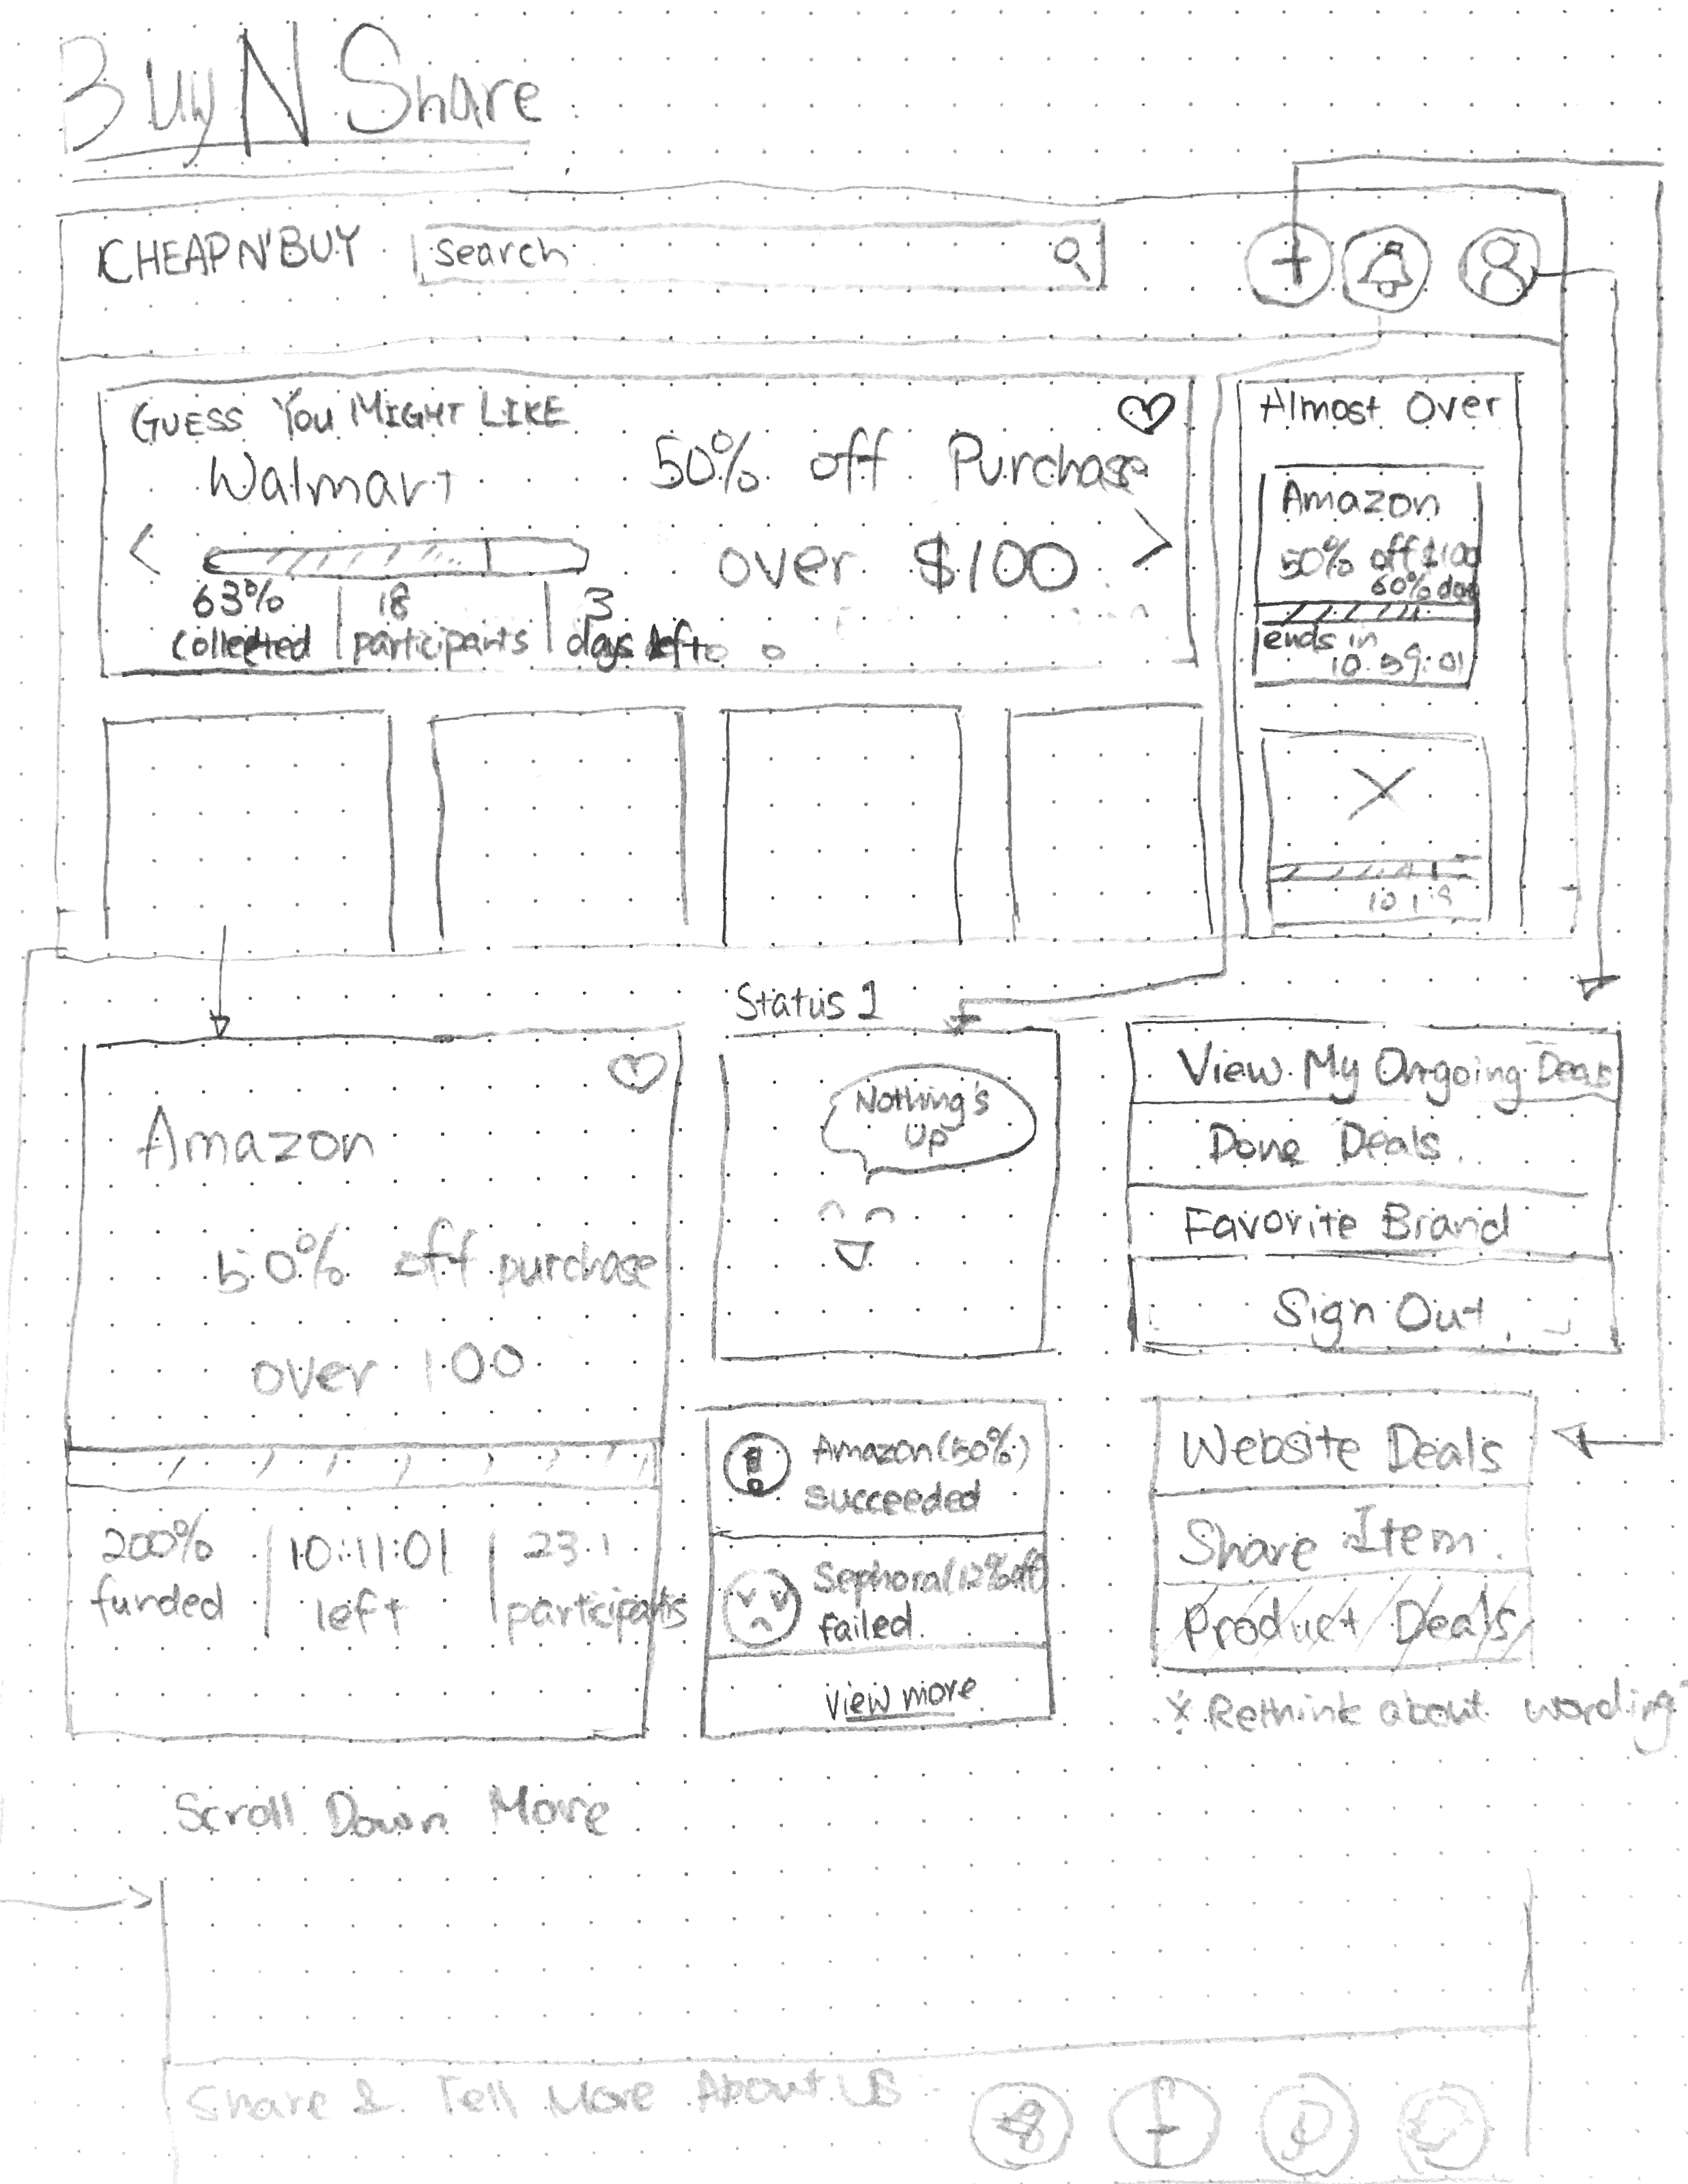 Buy N Share
CHEAP N' BUY
search
GUESS YOU MIGHT LIKE
Walmart
50% off Purchase
over $100
63%
collected
18
participants
3
days left
Almost Over
Amazon
50% off $100
60%
ends in
10:59:01
Status 1
Amazon
50% off purchase
over 100
200%
funded
10:11:01
left
231
participants
Nothing's
Up
Amazon (50%)
succeeded
Sephora (12% off)
failed
view more
View My Ongoing Deals
Done Deals
Favorite Brand
Sign Out
Website Deals
Share Item
Product Deals
* Rethink about wording
Scroll Down More
Share & Tell More About US